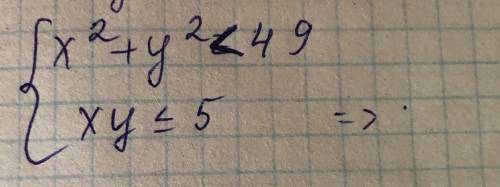 x² + y² < 49
xy ≤ 5 =>